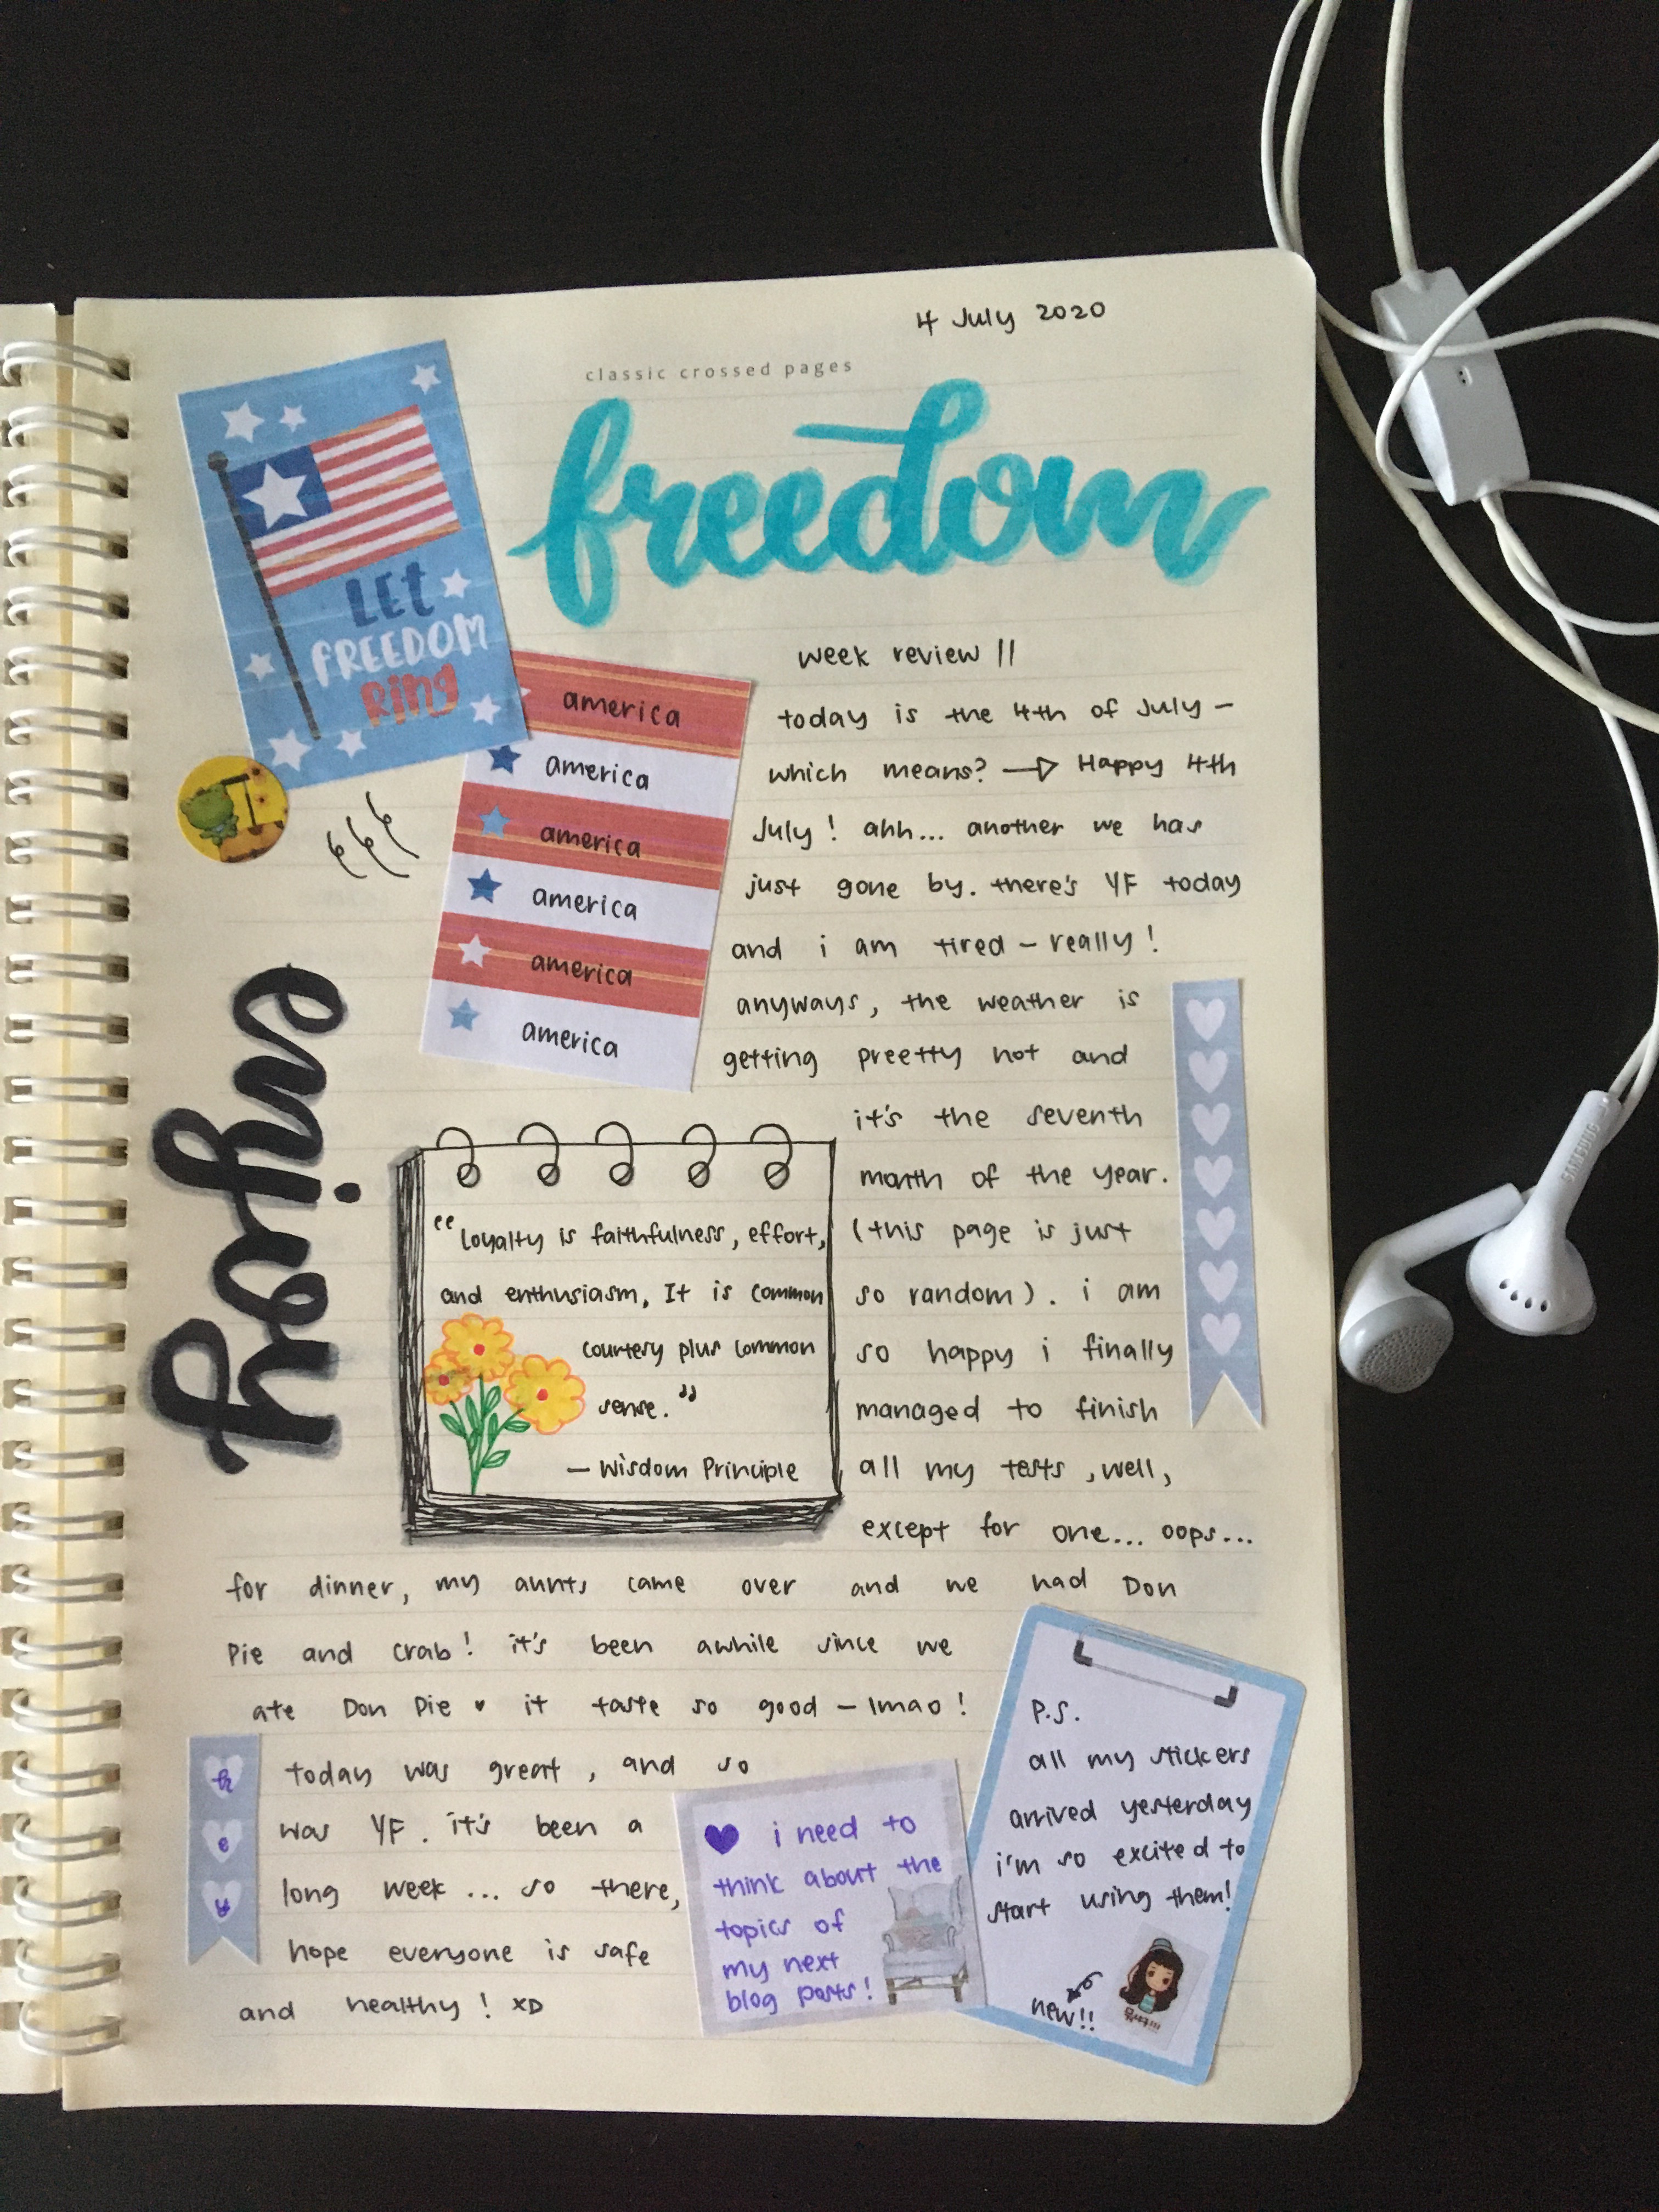 4 July 2020
classic crossed pages
freedom
LET
FREEDOM
Ring
america
america
america
america
america
america
week review ||
today is the 4th of July –
which means? → Happy 4th
July! ahh... another we has
just gone by. there's YF today
and i am tired – really!
anyways, the weather is
getting preetty hot and
it's the seventh
month of the year.
(this page is just
so random). i am
so happy i finally
managed to finish
all my tests, well,
except for one... oops...
enjoy
"Loyalty is faithfulness, effort,
and enthusiasm, It is common
courtesy plus common
sense."
– Wisdom Principle
for dinner, my aunts came over and we had Don
Pie and crab! it's been awhile since we
ate Don Pie ♥ it taste so good – lmao!
today was great, and so
was YF. it's been a
long week... so there,
hope everyone is safe
and healthy! XD
h
e
y
♥ i need to
think about the
topics of
my next
blog posts!
P.S.
all my stickers
arrived yesterday
i'm so excited to
start using them!
new!!
SAMSUNG